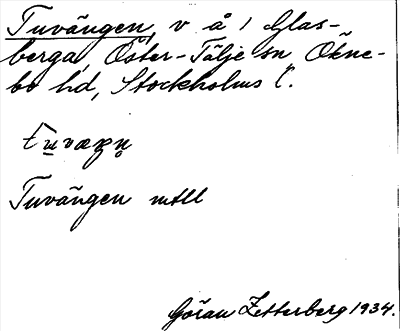 Tuvängen, v å 1 Glas-
berga, Öster-Tälje sn, Ökne-
bo hd, Stockholms l.
Tuvängen mtll
Göran Zetterberg 1934.